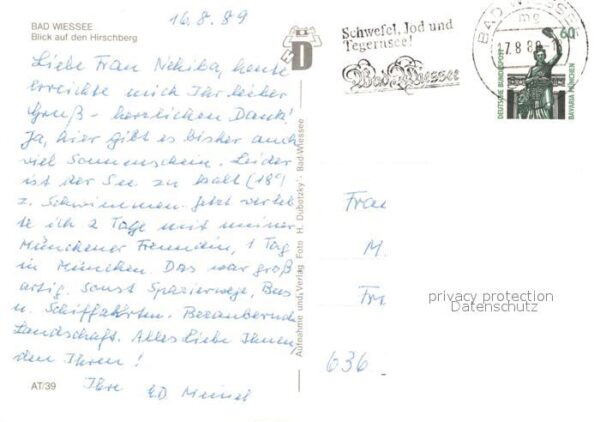 16.8.89
BAD WIESSEE
Blick auf den Hirschberg
Liebe Frau Nekiba, heute
erreichte mich Ihr lieber
Gruß - herzlichen Dank!
Ja, hier gibt es bisher auch
viel Sonnenschein. Leider
ist der See zu kalt (18°)
z. Schwimmen. Jetzt verleb
te ich 2 Tage mit meiner
Münchener Freundin, 1 Tag
in München. Das war groß
artig. Sonst Spazierwege, Bus
u. Schiffahrten. Bezaubernde
Landschaft. Alles Liebe Ihnen,
den Ihren!
Ihre
AT/39
Aufnahme und Verlag Foto H. Dubotzky · Bad-Wiessee
D
Schwefel, Jod und
Tegernsee!
Bad Wiessee
BAD WIESSEE
17.8.89
60
DEUTSCHE BUNDESPOST
BAVARIA MÜNCHEN
Frau
M.
privacy protection
Datenschutz
636